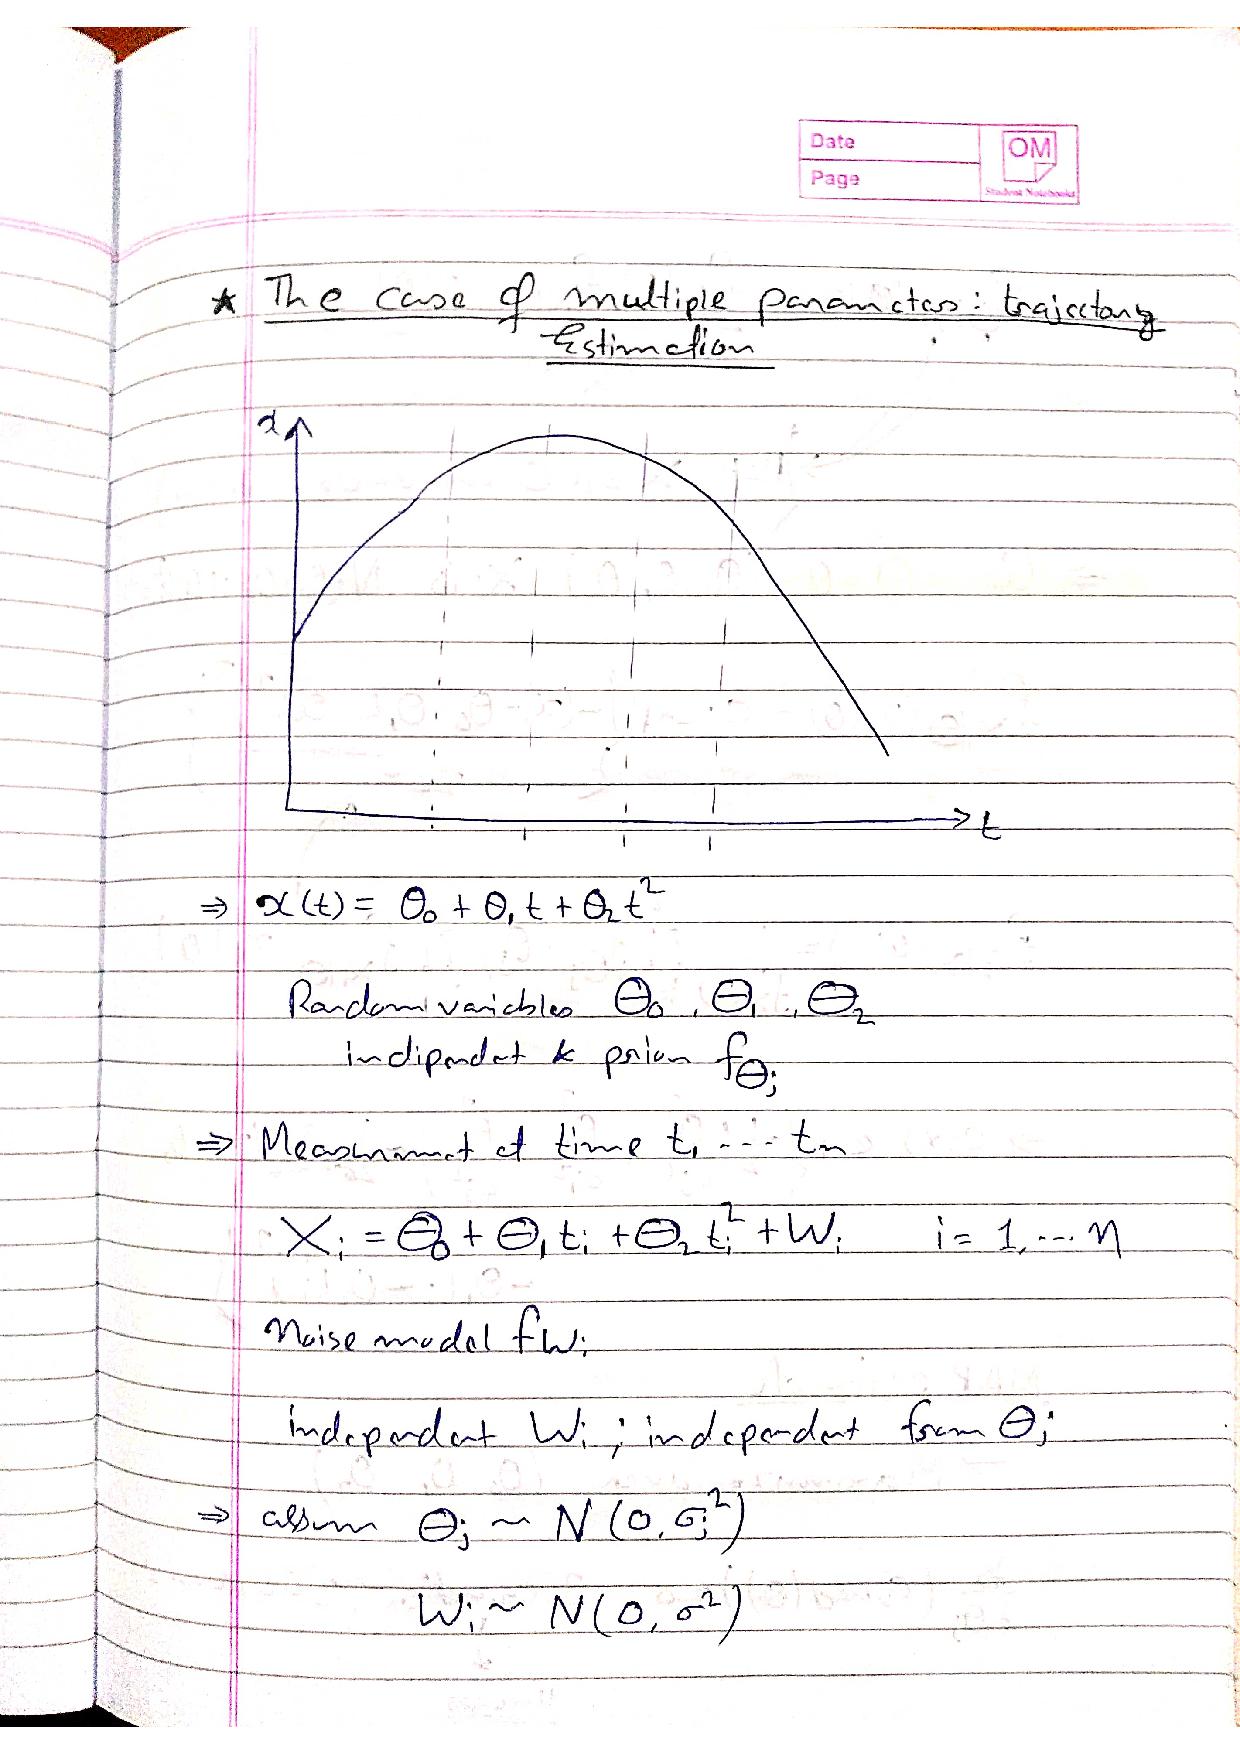 Date
Page
OM
Student Notebooks
★ The case of multiple parameters: trajectory
Estimation
x
t
⇒ x(t) = θ₀ + θ₁t + θ₂t²
Random variables Θ₀, Θ₁, Θ₂
indipendet & prior f_Θⱼ
⇒ Measurement at time t₁ ... tₙ
Xᵢ = Θ₀ + Θ₁tᵢ + Θ₂tᵢ² + Wᵢ i = 1, ... n
Noise model f_Wᵢ
independent Wᵢ ; independent from Θⱼ
⇒ assum Θⱼ ~ N(0, σⱼ²)
Wᵢ ~ N(0, σ²)